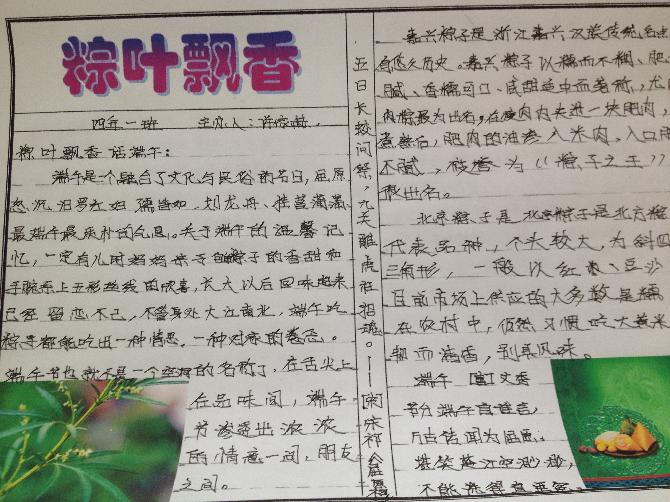 粽叶飘香
四年一班 主办人:
粽叶飘香话端午:
端午是个融合了文化与民俗的节日,屈原
怨沉汨罗江妇孺皆知,划龙舟、挂菖蒲满
最端午最质朴的气息。关于端午的温馨记
忆,一定有儿时妈妈亲手包粽子的香甜和
手腕系上五彩丝线的欣喜,长大以后回味起来
已经留恋不已,不管身处大江南北,端午吃
粽子都能吃出一种情意,一种对家的眷恋。
端午节也就不是一个空洞的名称了,在舌尖上
在品味间,端午
节渗透出浓浓
的情意一间,朋友
之间。
五日长蛟问祭,九关雕虎往招魂。——[宋]宋祁
嘉兴粽子是浙江嘉兴汉族传统名点
有悠久历史。嘉兴粽子以糯而不糊、肥
腻、香糯可口、咸甜适中而著称,尤
肉粽最为出名,在瘦肉内夹进一块肥肉,
煮熟后,肥肉的油渗入米内,入口
不腻,被誉为“粽子之王”
最出名。
北京粽子是北京粽子是北方粽
代表品种,个头较大,为斜四
三角形,一般以红枣、豆沙
目前市场上供应的大多数是糯
在农村中,仍然习惯吃大黄米
韧而清香,别具风味。
端午 [唐]文秀
节分端午自谁言,
万古传闻为屈原;
堪笑楚江空渺渺,
不能洗得直臣冤。